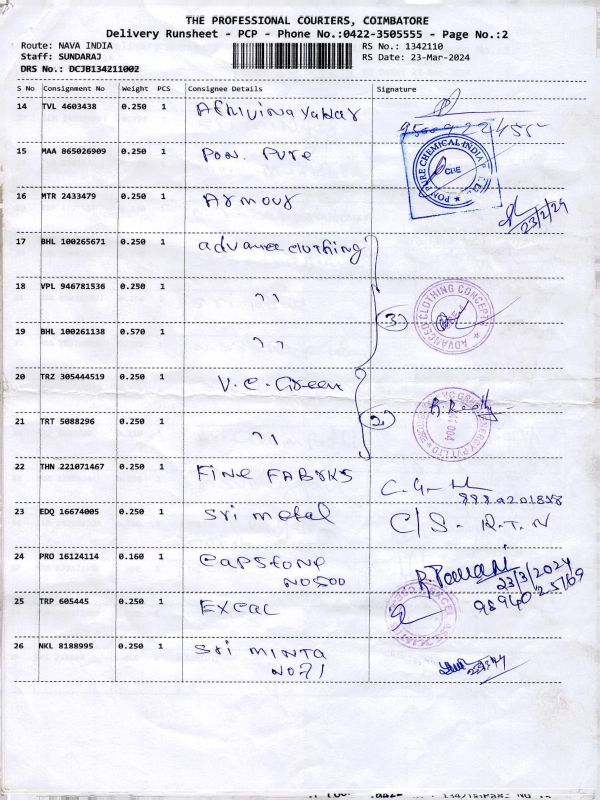 THE PROFESSIONAL COURIERS, COIMBATORE
Delivery Runsheet - PCP - Phone No.:0422-3505555 - Page No.:2
Route: NAVA INDIA RS No.: 1342110
Staff: SUNDARAJ RS Date: 23-Mar-2024
DRS No.: DCJB134211002
S No Consignment No Weight PCS Consignee Details Signature
14 TVL 4603438 0.250 1
15 MAA 865026909 0.250 1 Pon. Pure
PON PURE CHEMICAL INDIA
16 MTR 2433479 0.250 1 Armour
23/2/24
17 BHL 100265671 0.250 1 advance clothing
18 VPL 946781536 0.250 1 ''
3
ADVANCED CLOTHING CONCEPTS
19 BHL 100261138 0.570 1 ''
20 TRZ 305444519 0.250 1 V.C. Green
2
21 TRT 5088296 0.250 1 ''
22 THN 221071467 0.250 1 FINE FABRKS
23 EDQ 16674005 0.250 1 Sri metal C/S. R.T.N
24 PRO 16124114 0.160 1 Capstone
NO500
23/3/2024
98940 25769
25 TRP 605445 0.250 1 EXCAL
26 NKL 8188995 0.250 1 Sri MINTA
NO71